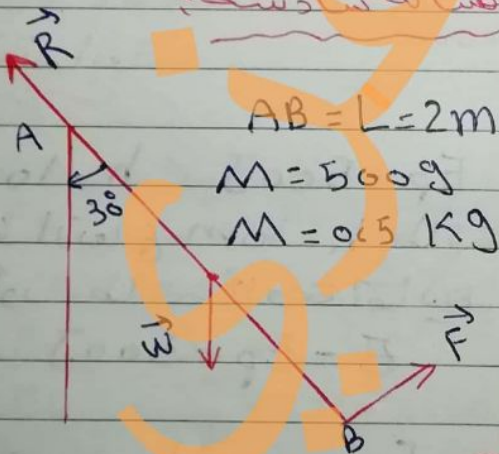 R
A
AB = L = 2m
M = 500g
M = 0.5 Kg
30°
W
F
B